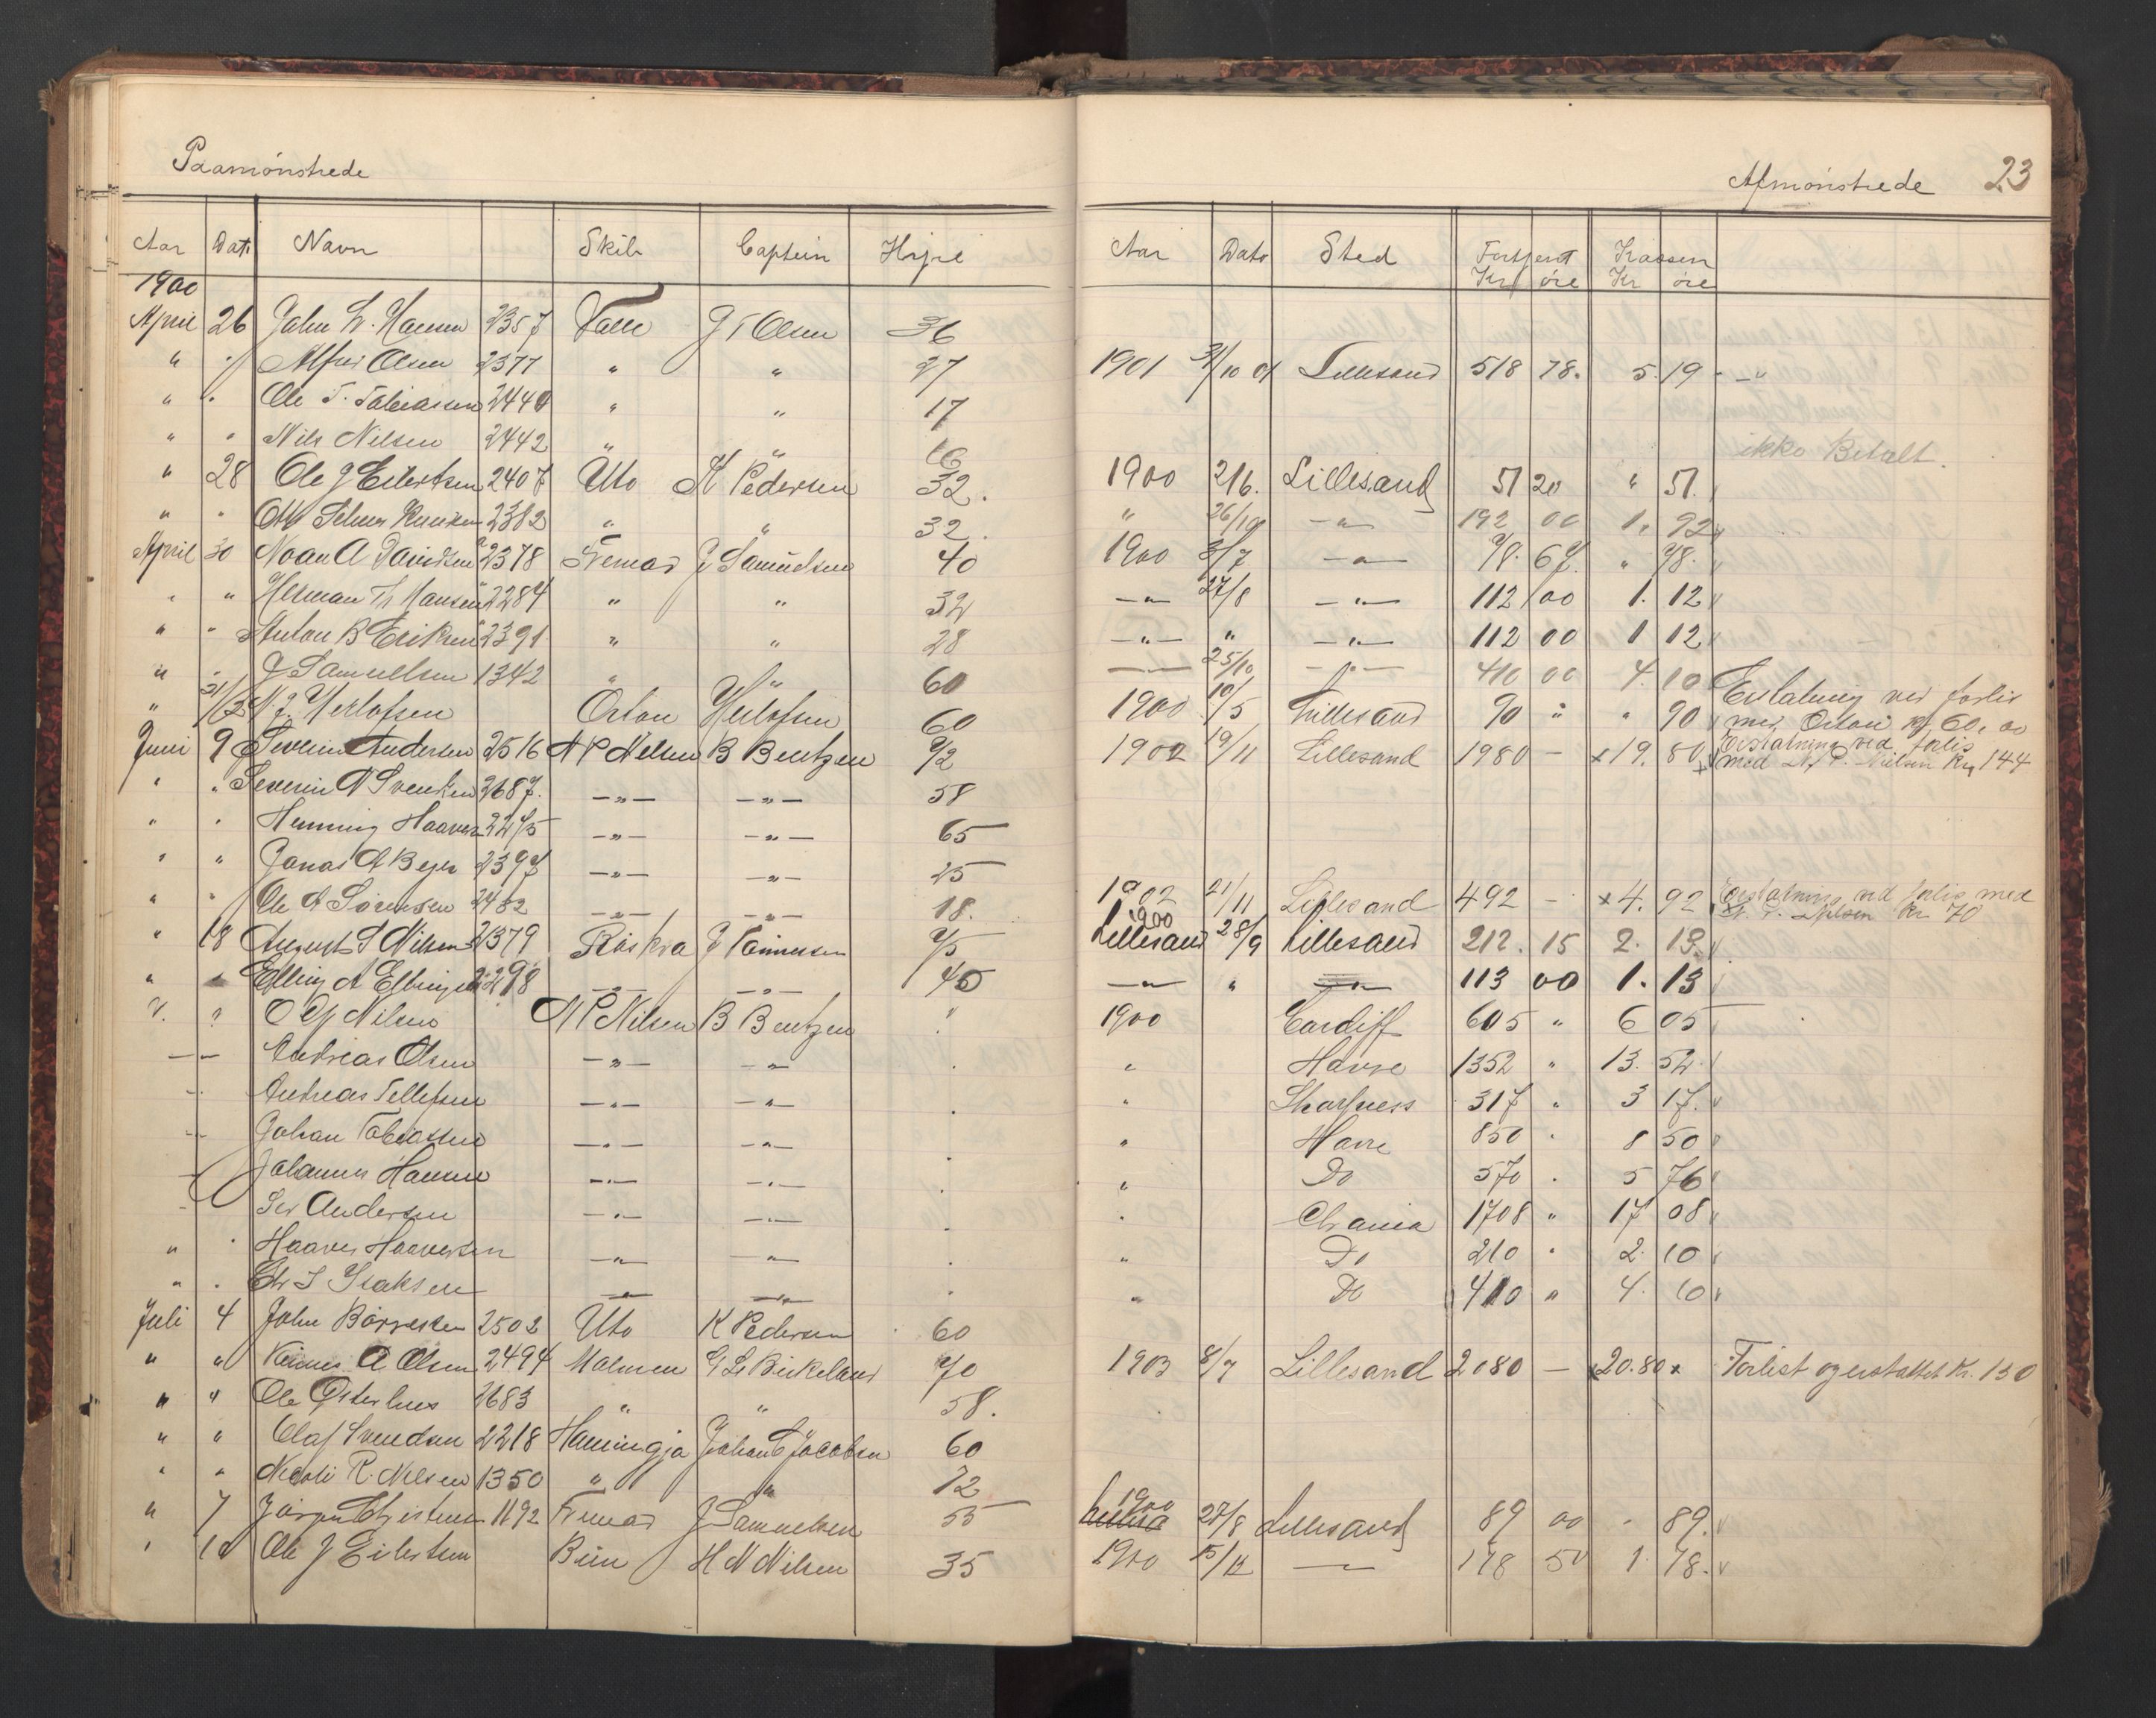 Paamönstrede
Afmönstrede 23
Aar Dato Navn Skib Captein Hyre Aar Dato Sted Fortjent Kassen
Kr öre Kr öre
1900
April 26 John W. Hansen 2357 Valle J T Olsen 36
" " Alfred Olsen 2377 " " 27 1901 31/10 01 Lillesand 518 78. 5.19
" " Ole T. Tobiassen 2440 " " 17
" " Nils Nilsen 2442 " " ikke Betalt.
" 28 Ole J Eilertsen 2407 Uto K Pedersen 32. 1900 2/6. Lillesand 51 20 " 51.
" " Otto 2382 " " 32. " 26/10 —"— 192 00 1. 92
April 30 Noan A Davidsen 2378 Fremad J Samuelsen 40 1900 3/7 —"— 78. 67. " 78.
" " Herman Th Hansen 2284 " " 32 —"— 27/8 —"— 112 00 1. 12
" " Anton B Eriksen 2391 " " 28 —"— " —"— 112 00 1 12
" " J Samuelsen 1342 " " 60 — 25/10 —"— 410 00 4. 10
" N. J. Herlofsen Herlofsen 60 1900 10/5 Lillesand 90 " " 90 Erstatning ved forlis
med Kr 60,00
Juni 9 Severin Andersen 2516 N P Nelsen B Bentzen 72 1902 19/11 Lillesand 1980 – x19. 80 Erstatning ved forlis
med N. P. Nielsen Kr 144
" " Severin A Svendsen 2687. —"— —"— 58
" " Henning Haaversen 2475 —"— —"— 65
" " Jonas A Beyer 2397 —"— —"— 25
" " Ole A Sörensen 2482 —"— —"— 18. 1902 21/11 Lillesand 492 – x4. 92 Erstatning ved forlis med
N. P. Nilsen Kr 70
" 18 August S Nilsen 2379 Röskva J Tönnesen 75 1900 Lillesand 28/9 Lillesand 212. 15 2. 13.
" " Elling A Ellingsen 2298 —"— —"— 45 —"— " —"— 113 00 1. 13
? ? O Nilsen N P Nilsen B Bentzen " 1900 Cardiff 605 " 6 05
— — Andreas Olsen —"— —"— " " Havre 1352 " 13. 52
Andreas Tellefsen —"— —"— " " Sharpness 317 " 3 17.
Johan Tobiassen —"— —"— " " Havre 850 " 8 50
Johannes Hansen —"— —"— " " Do 570 " 5 76
Sev Andersen —"— —"— " " Chrania 1708 " 17 08
" " Haaver Haaversen —"— —"— " " Do 210 " 2. 10
" " Chr I Isaksen —"— —"— " " Do 410 " 4. 10
Juli 4 John Börresen 2502 Uto K Pedersen 60
" " A Olsen 2494 Malmen G L Birkeland 70 1903 8/7 Lillesand 2080 – x20.80x Forlist og erstattet Kr. 150
" " Ole Österhus 2683 " " 58.
" " Olaf Svendsen 2218 Hamingja Johan C Jacobsen 60
" " Nicoli R. Nilsen 1350 " " 72
" 7 Jörgen Christensen 1192 Fremad J Samuelsen 55 1900 27/8 Lillesand 89 00 " 89.
" 10 Ole J Eilertsen H N Nilsen 35 1900 15/12 —"— 178 50 1. 78.